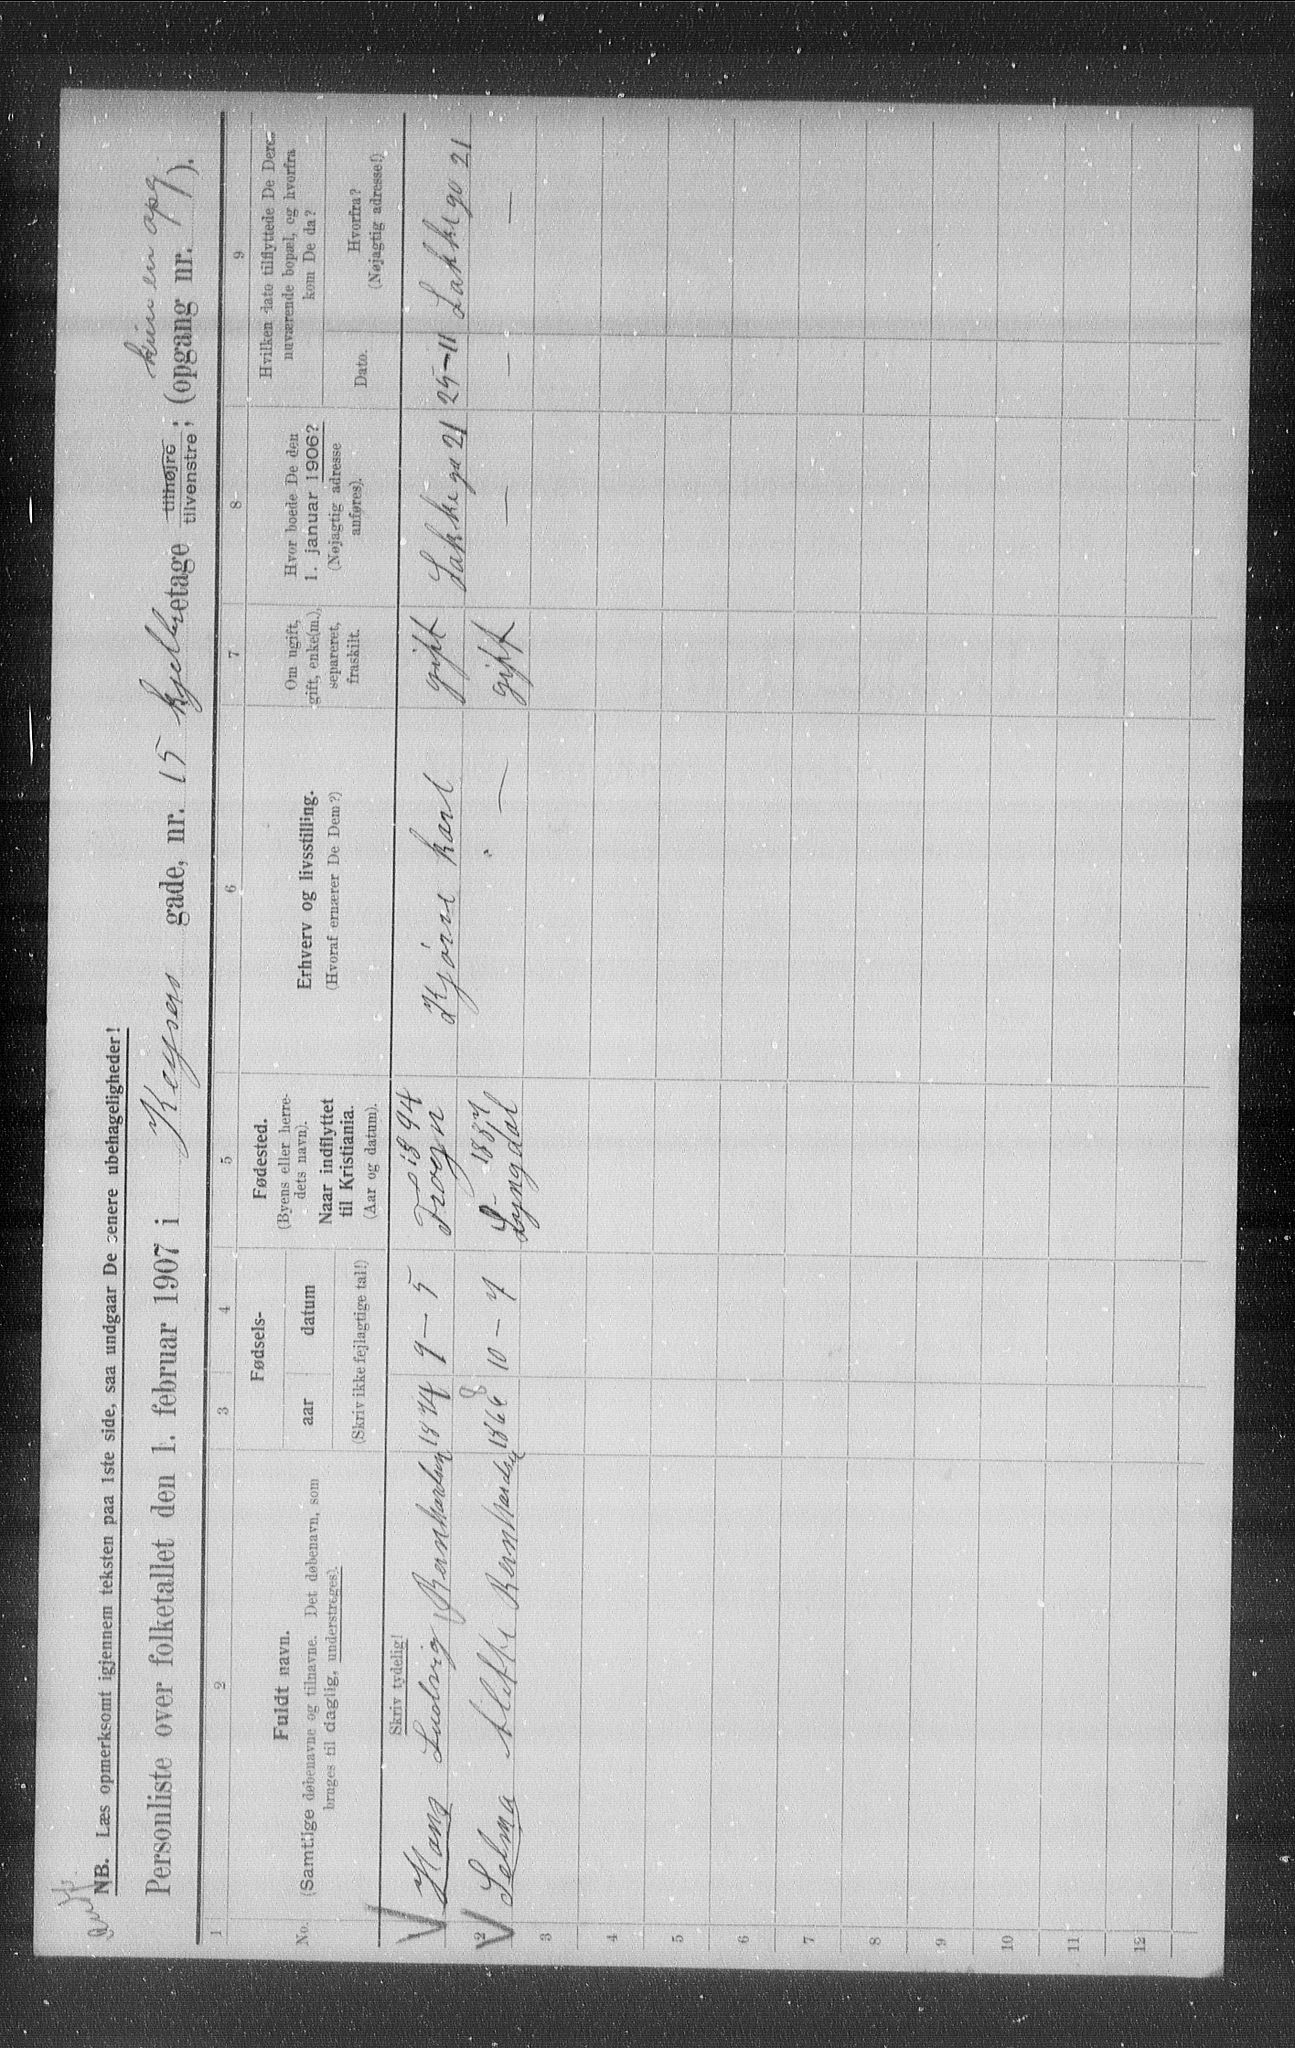 NB. Læs opmerksomt igjennem teksten paa 1ste side, saa undgaar De senere ubehageligheder!
Personliste over folketallet den 1. februar 1907 i Keysers gade, nr. 15 kjelleretage tilhøjre tilvenstre; (opgang nr. kun en opg).
1 2 3 4 5 6 7 8 9
No.
Fuldt navn.
(Samtlige døbenavne og tilnavne. Det døbenavn, som
bruges til daglig, understreges).
Skriv tydelig!
Fødsels-
aar datum
(Skriv ikke fejlagtige tal!)
Fødested.
(Byens eller herre-
dets navn).
Naar indflyttet
til Kristiania.
(Aar og datum).
Erhverv og livsstilling.
(Hvoraf ernærer De Dem?)
Om ugift,
gift, enke(m.),
separeret,
fraskilt.
Hvor boede De den
1. januar 1906?
(Nøjagtig adresse
anføres).
Hvilken dato tilflyttede De Deres
nuværende bopæl, og hvorfra
kom De da?
Dato.
Hvorfra?
(Nøjagtig adresse!)
Hans Ludvig Bernhardsen 1874 9-5 1894 Frogn Kjøre karl gift Lakkega 21 25-11 Lakkega 21
2 Selma Alette Bernhardsen 1868 10-7 1887 Lyngdal — gift — — —
3
4
5
6
7
8
9
10
11
12